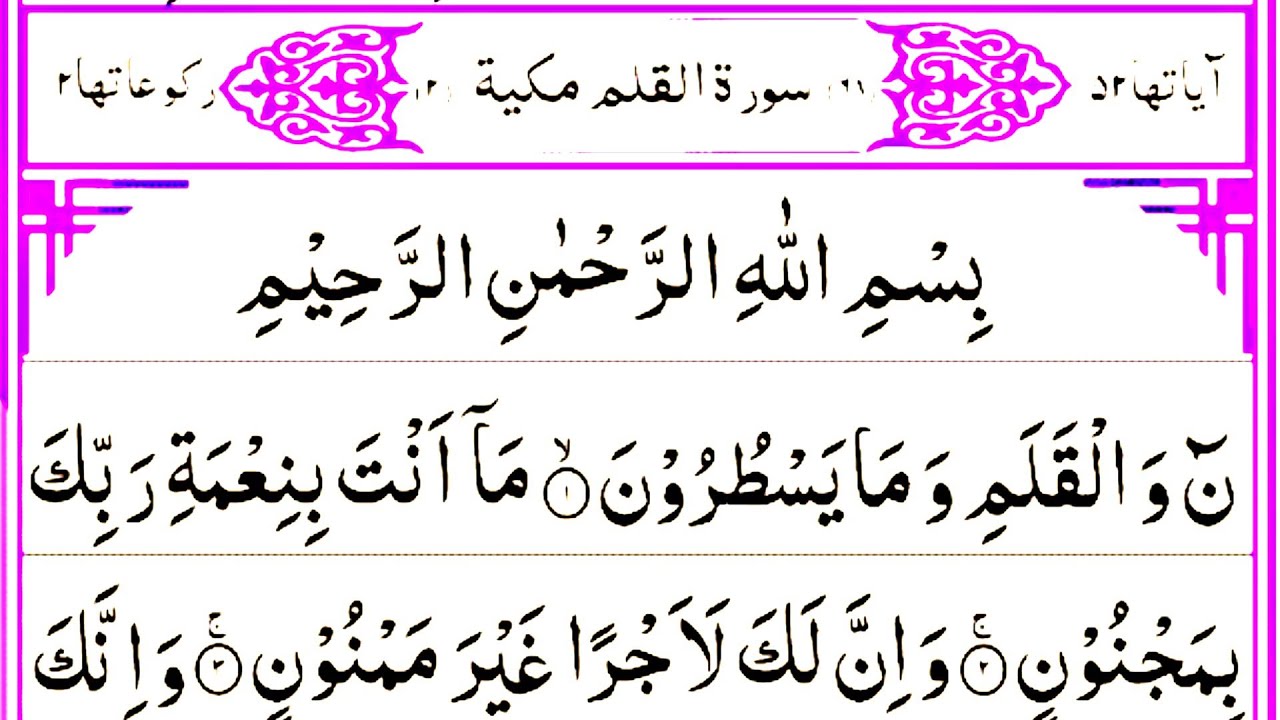 آياتها ٥٢ سورة القلم مكية (٢) ركوعاتها ٢
بِسْمِ اللّٰهِ الرَّحْمٰنِ الرَّحِيْمِ
نٓ وَالْقَلَمِ وَ مَا يَسْطُرُوْنَ ۙ﴿١﴾ مَآ اَنْتَ بِنِعْمَةِ رَبِّكَ
بِمَجْنُوْنٍ ۚ﴿٢﴾ وَاِنَّ لَكَ لَاَجْرًا غَيْرَ مَمْنُوْنٍ ۚ﴿٣﴾ وَاِنَّكَ